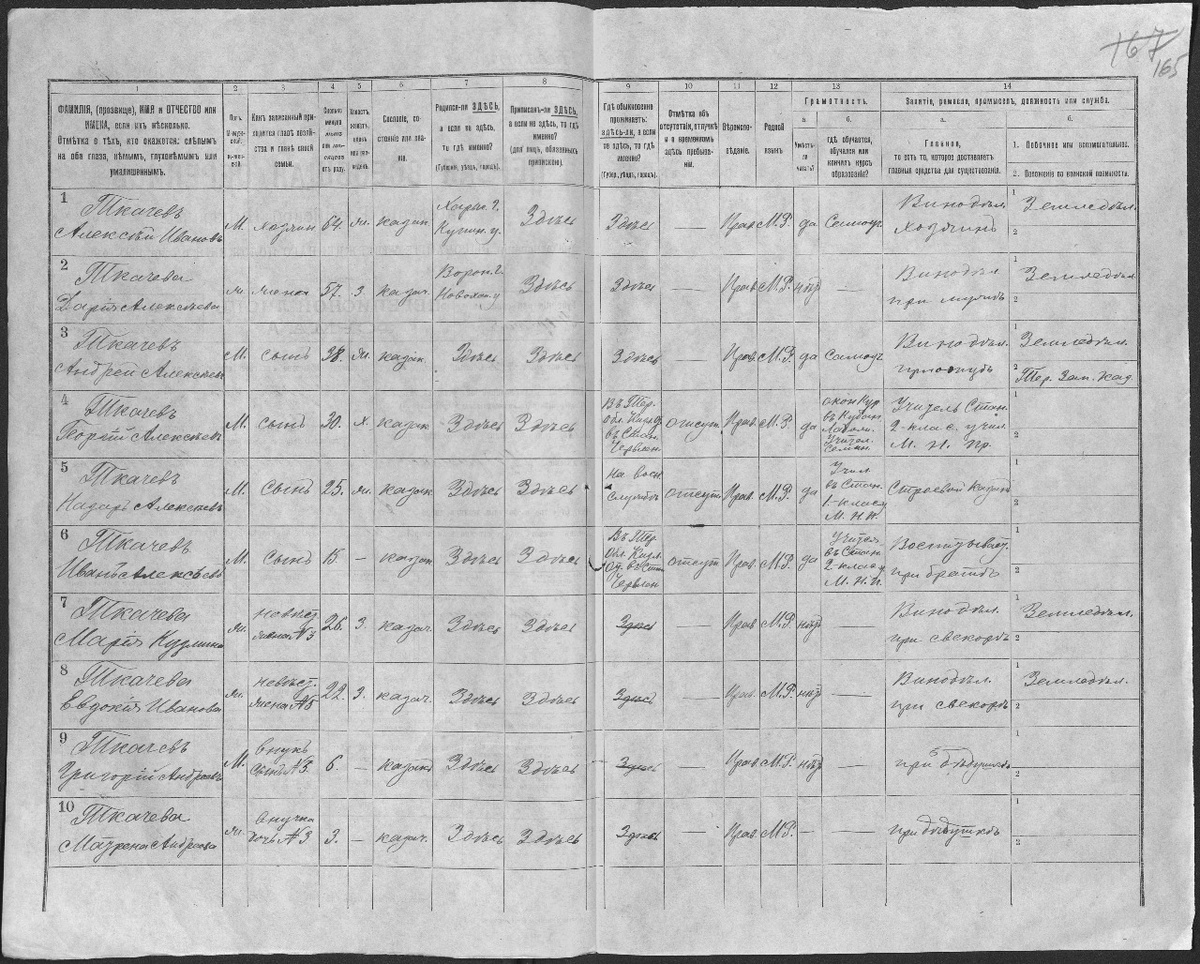 167
165
1
2
3
4
5
6
7
8
9
10
11
12
13
14
ФАМИЛІЯ, (прозвище), ИМЯ и ОТЧЕСТВО или
ИМЕНА, если ихъ нѣсколько.
Отмѣтка о тѣхъ, кто окажется: слѣпымъ
на оба глаза, нѣмымъ, глухонѣмымъ или
умалишеннымъ.
Полъ.
Какъ записанный при-
ходится главѣ хозяй-
ства и главѣ своей
семьи.
Сколько
минуло
лѣтъ
Сословіе, со-
стояніе или зва-
ніе.
Родился-ли ЗДѢСЬ,
а если не здѣсь,
то гдѣ именно?
(Губернія, уѣздъ, городъ).
Приписанъ-ли ЗДѢСЬ,
а если не здѣсь, то гдѣ
именно?
(для лицъ, обязанных
припискою).
Гдѣ обыкновенно
проживаетъ:
здѣсь-ли, а если
не здѣсь, то гдѣ
именно?
(Губер., уѣздъ, городъ).
Отмѣтка объ
отсутствіи, отлучкѣ
и о временномъ
здѣсь пребыва-
ніи.
Вѣроиспо-
вѣданіе.
Родной
языкъ
Грамотность.
а.
б.
Умѣетъ-
ли
читать?
гдѣ обучается,
обучался или
кончилъ курсъ
образованія?
Занятіе, ремесло, промыселъ, должность или служба.
а.
б.
Главное,
то есть то, которое доставляетъ
главныя средства для существованія.
1. Побочное или вспомогательное.
2. Положеніе по воинской повинности.
1
Ткачевъ
Алексѣй Ивановъ
М. хозяинъ 64. казак
Харьк. г.
Купян. у.
Здѣсь
Здѣсь
—
Прав. М.Р. да Самоуч.
Винодѣл.
Хозяинъ
1 Земледѣл.
2
2
Ткачева
Дарія Алексѣева
жена 57. З. казач.
Ворон. г.
Новохоп. у.
Здѣсь
Здѣсь
—
Прав. М.Р. нѣт —
Винодѣл.
при мужѣ
1 Земледѣл.
2
3
Ткачевъ
Андрей Алексѣевъ
М. сынъ 38. казак
Здѣсь
Здѣсь
Здѣсь
—
Прав. М.Р. да Самоуч.
Винодѣл.
при отцѣ
1 Земледѣл.
2 Тер. Зап. Каз.
4
Ткачевъ
Георгій Алексѣевъ
М. сынъ 30. Х. казак
Здѣсь
Здѣсь
Въ Тер.
Обл. Кизл. О.
въ Стан.
Червлен.
отсут.
Прав. М.Р. да
окон. кур
въ Кубан.
Учител.
Семин.
Учитель Стан.
2-клас. учил.
М. Н. Пр.
1
2
5
Ткачевъ
Назаръ Алексѣевъ
М. сынъ 25. казак
Здѣсь
Здѣсь
На воен.
службѣ
отсут.
Прав. М.Р. да
Учил.
въ Стан.
1-класу
М. Н. П.
Строевой Казакъ
1
2
6
Ткачевъ
Иванъ Алексѣевъ
М. сынъ 15. — казак
Здѣсь
Здѣсь
Въ Тер.
Обл. Кизл.
О. въ Стан.
Червлен.
отсут.
Прав. М.Р. да
Учител.
въ Стан.
2-класу
М. Н. П.
Воспитывает.
при братѣ
1
2
7
Ткачева
Марія Кузмина
невѣст.
жена № 3
26. З. казач.
Здѣсь
Здѣсь
Здѣсь
—
Прав. М.Р. нѣт —
Винодѣл.
при свекорѣ
1 Земледѣл.
2
8
Ткачева
Евдокія Иванова
невѣст.
жена № 5
22. З. казач.
Здѣсь
Здѣсь
Здѣсь
—
Прав. М.Р. нѣт —
Винодѣл.
при свекорѣ
1 Земледѣл.
2
9
Ткачевъ
Григорій Андреевъ
М.
внукъ
сынъ № 3.
6. — казакъ
Здѣсь
Здѣсь
Здѣсь
—
Прав. М.Р. нѣт —
1
2
10
Ткачева
Матрена Андреева
внучка
дочь № 3
3. — казач.
Здѣсь
Здѣсь
Здѣсь
—
Прав. М.Р. — —
при дѣдушкѣ
1
2